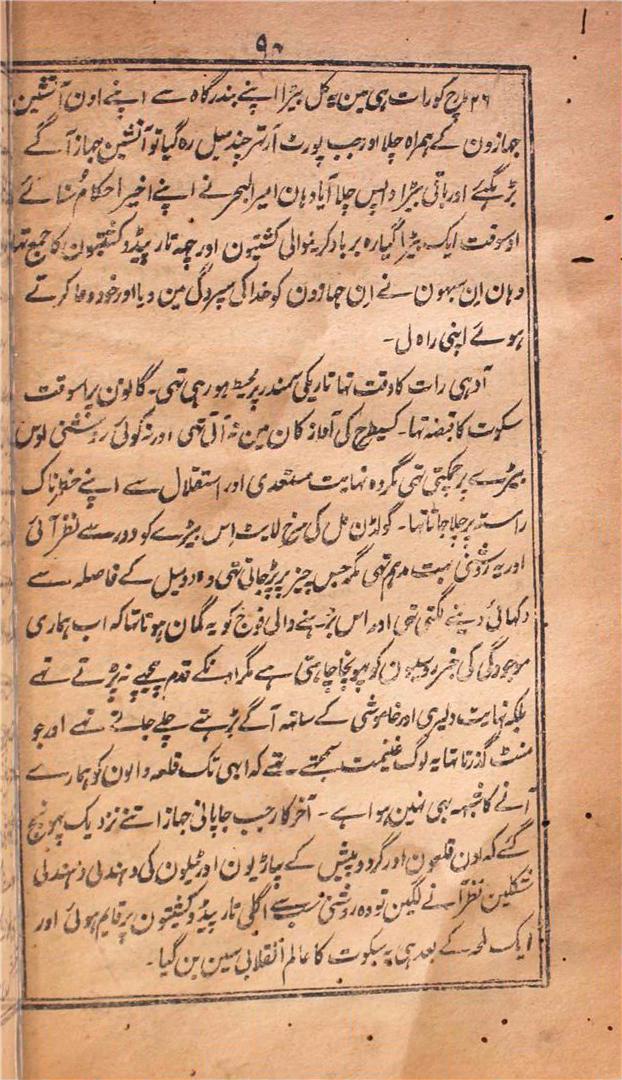 ۹۰
۲۶ مارچ کو رات ہی مین یہ کل بیڑا اپنے بندرگاہ سے اپنے اون آتشین
جہازون کے ہمراہ چلا اور جب پورٹ آرتھر چند میل رہ گیا تو آتشین جہاز آگے
بڑہگئے اور باقی بیڑا واپس چلا آیا وہان امیر البحر نے اپنے اخیر احکام سُنائے
اوسوقت ایک بیڑا گیارہ برباد کر نیوالی کشتیون اور چہہ تارپیڈو کشتیون کا جمع تہا
وہان اِن سبہون نے اِن جہازون کو خدا کی سپردگی مین دیا اور خود دعا کرتے
ہوئے اپنی راہ لی۔
آدہی رات کا وقت تہا تاریکی سمندر پر محیط ہو رہی تہی۔ گالون پر اسوقت
سکوت کا قبضہ تہا۔ کسیطرح کی آواز کان مین نہ آتی تہی اور نہ کوئی روشنی اوس
بیڑے پر چمکتی تہی مگر وہ نہایت مستعدی اور استقلال سے اپنے خطرناک
راستہ پر چلا جاتا تہا۔ گولڈن ہل کی سرچ لایٹ اِس بیڑے کو دور سے نظر آئی
اور یہ روشنی بہت مدہم تہی مگر جس چیز پر پڑ جاتی تہی وہ دو میل کے فاصلہ سے
دکہائی دینے لگتی تہی اور اس بڑہنے والی فوج کو یہ گمان ہوتا تہا کہ اب ہماری
موجودگی کی خبر روسیون کو پہونچا چاہتی ہے مگر انکے قدم پیچہے نہ پڑتے تہے
بلکہ نہایت دلیری اور خاموشی کے ساتہہ آگے بڑہتے چلے جاتے تہے اور جو
منٹ گذرتا تہا یہ لوگ غنیمت سمجہتے تہے کہ ابہی تک قلعہ والون کو ہمارے
آنے کا شبہہ بہی نہین ہوا ہے۔ آخر کار جب جاپانی جہاز اتنے نزدیک پہونچ
گئے کہ اون قلعون اور گرد و پیش کے پہاڑیون اور ٹیلون کی دہندلی دہندلی
شکلین نظر آنے لگین تو وہ روشنی سب سے اگلی تارپیڈو کشتیون پر قایم ہوئی اور
ایک لمحہ کے بعد ہی یہ سکوت کا عالم انقلابی سین بن گیا۔